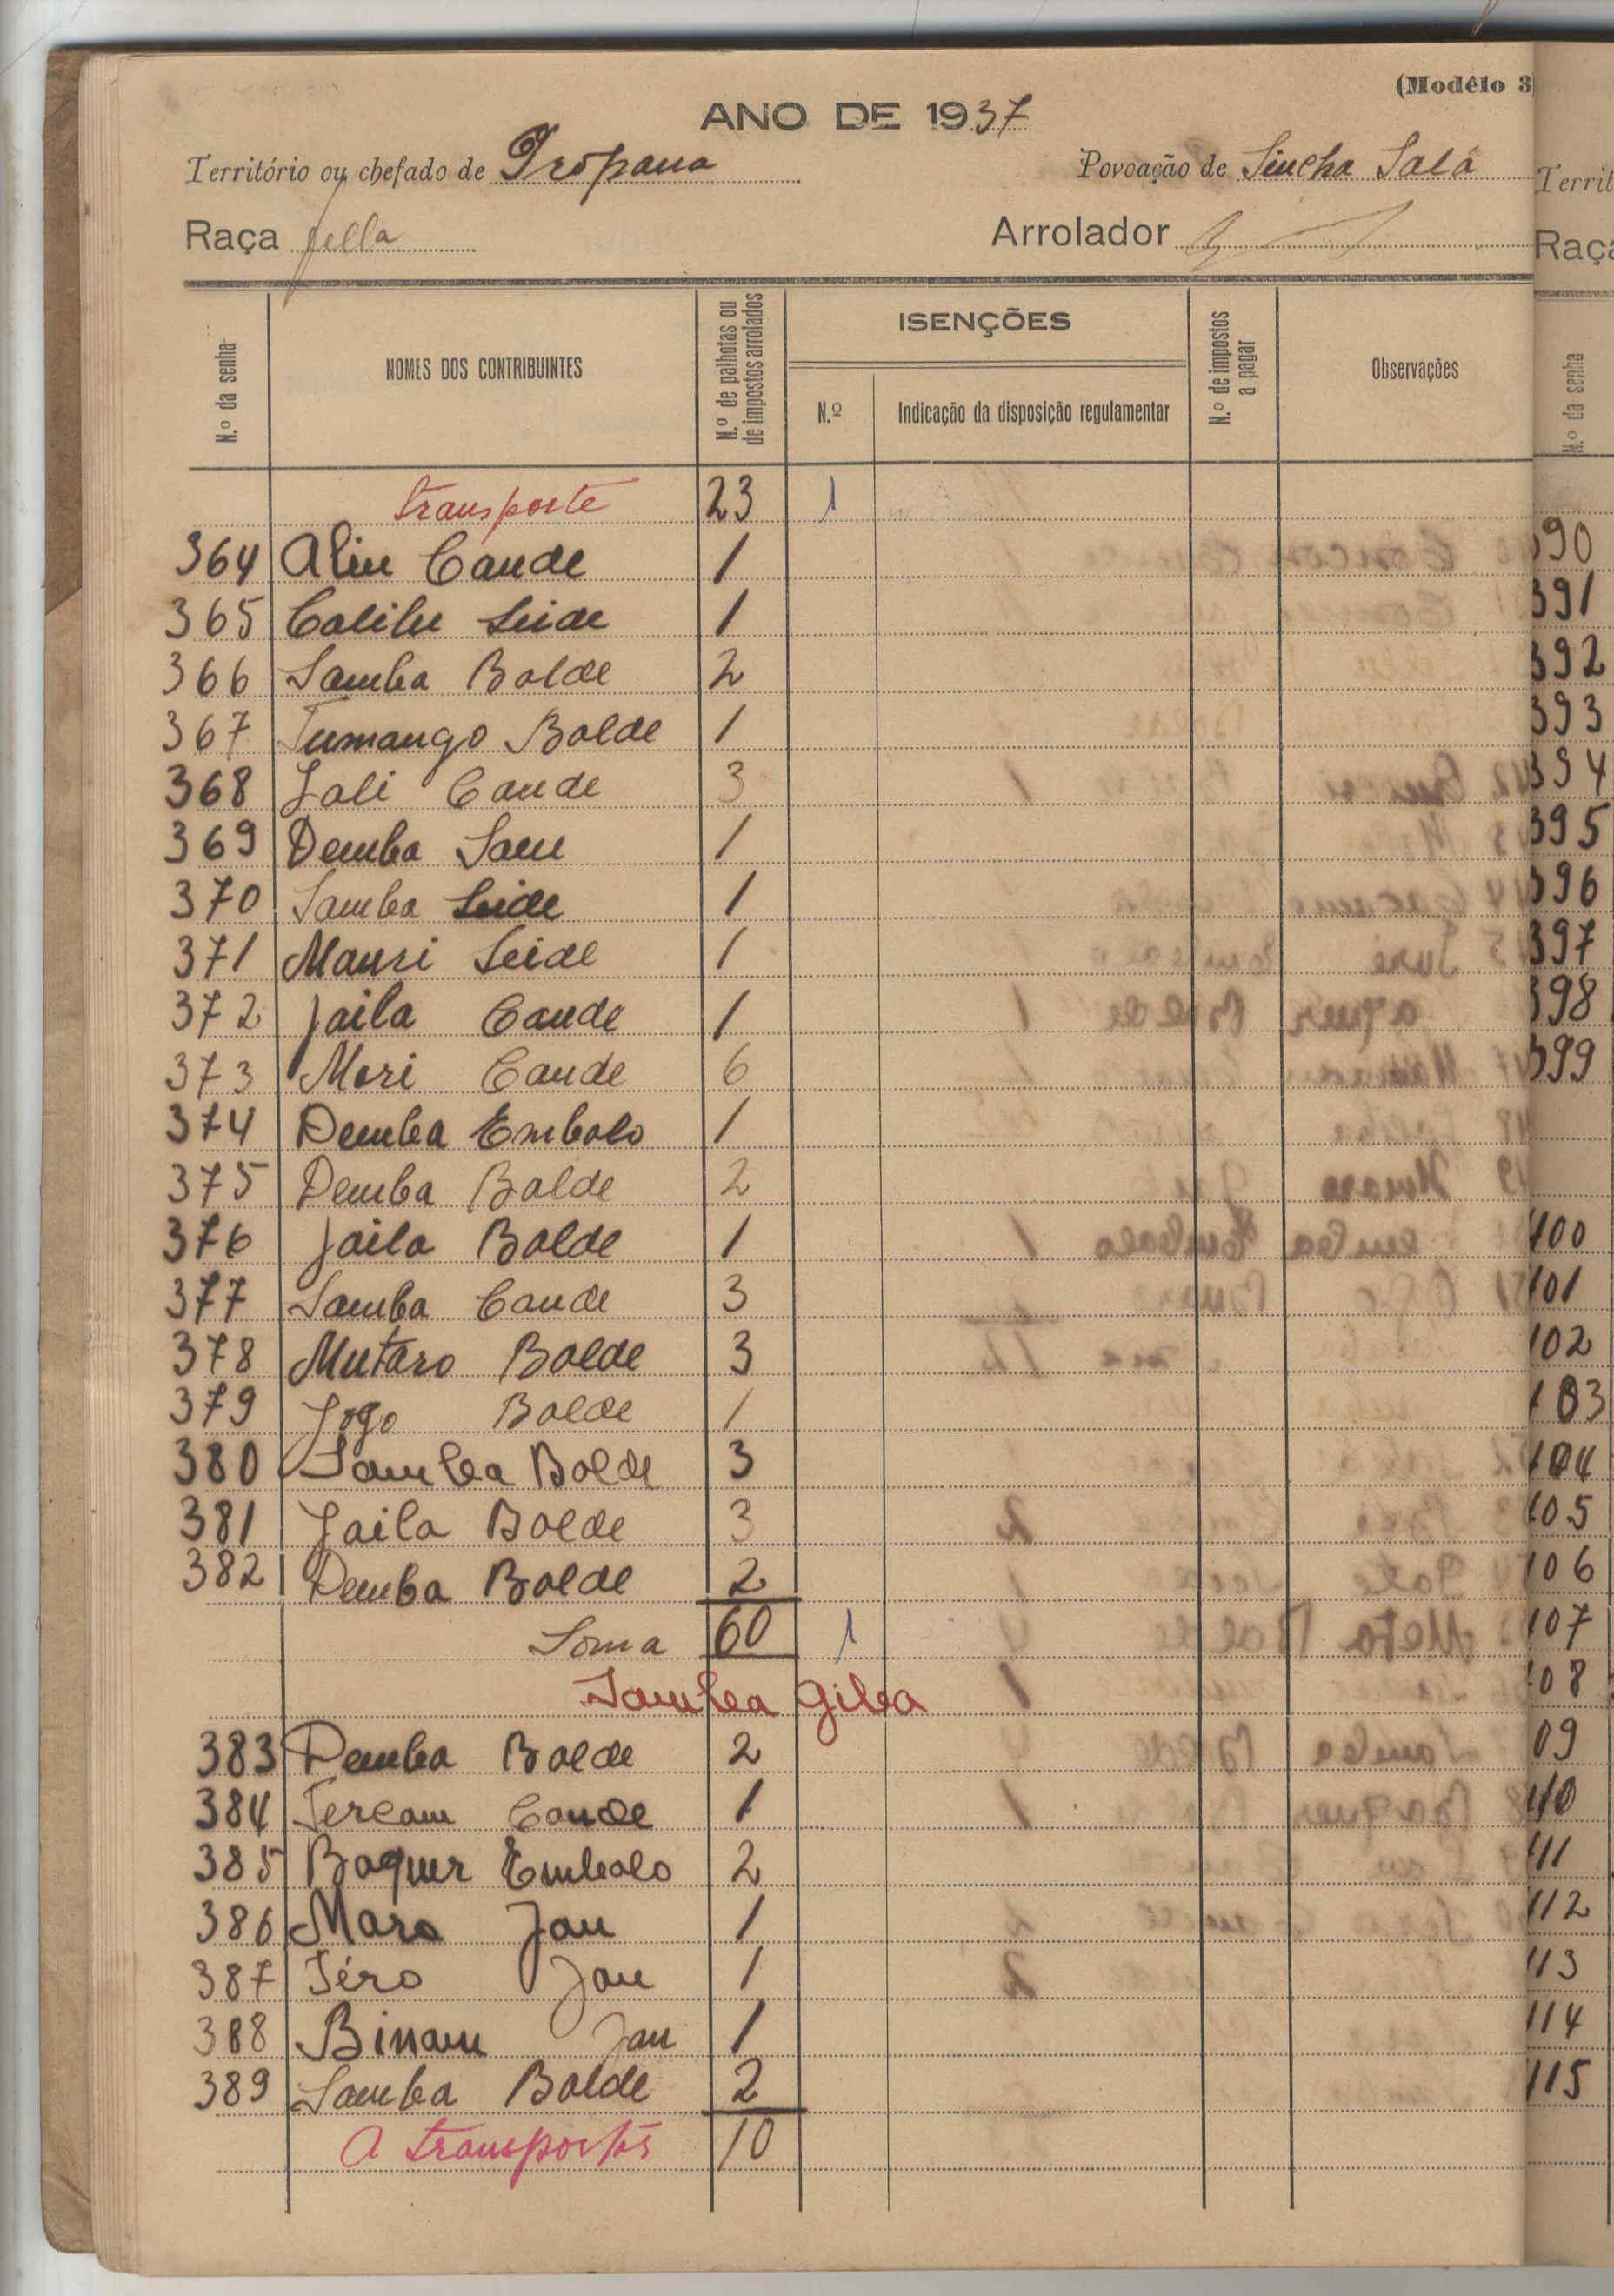 (Modêlo 3
ANO DE 1937
Território ou chefado de Propana Povoação de Sincha Salá
Raça fulla Arrolador
N.º da senha NOMES DOS CONTRIBUINTES N.º de palhotas ou de impostos arrolados ISENÇÕES N.º de impostos a pagar Observações
N.º Indicação da disposição regulamentar
transporte 23 1
364 Aliu Cande 1
365 Calilu Seide 1
366 Samba Balde 2
367 Tumango Balde 1
368 Jali Cande 3
369 Demba Sau 1
370 Samba Seide 1
371 Mausi Seide 1
372 Jaila Cande 1
373 Mori Cande 6
374 Demba Embalo 1
375 Demba Balde 2
376 Jaila Balde 1
377 Samba Cande 3
378 Mutaro Balde 3
379 Jogo Balde 1
380 Samba Balde 3
381 Jaila Balde 3
382 Demba Balde 2
Soma 60 1
Samba Giba
383 Demba Balde 2
384 Cande 1
385 Baquer Embalo 2
386 Mara Jau 1
387 Téro Jau 1
388 Binau Jau 1
389 Samba Balde 2
A transportar 10
Territ
Raça
N.º da senha
390
391
392
393
394
395
396
397
398
399
400
401
402
403
404
405
406
407
408
09
410
411
412
413
414
415